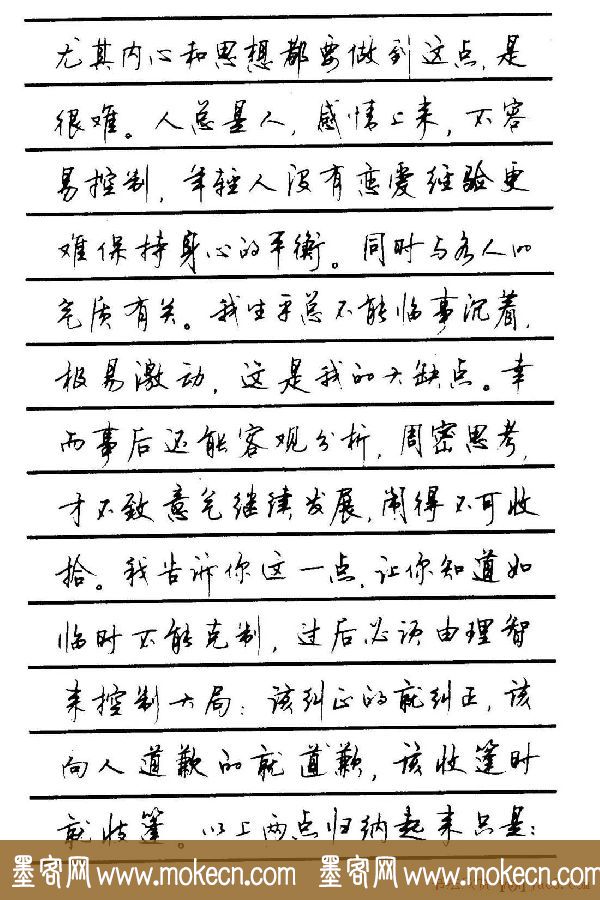 尤其内心和思想都要做到这点,是
很难。人总是人,感情上来,不容
易控制,年轻人没有恋爱经验更
难保持身心的平衡。同时与各人的
气质有关。我生平总不能临事沉着,
极易激动,这是我的大缺点。幸
而事后还能客观分析,周密思考,
才不致意气继续发展,闹得不可收
拾。我告诉你这一点,让你知道如
临时不能克制,过后必须由理智
来控制大局:该纠正的就纠正,该
向人道歉的就道歉,该收篷时
就收篷。以上两点归纳起来只是:
墨客网 www.mokecn.com 墨客网 www.mokecn.com